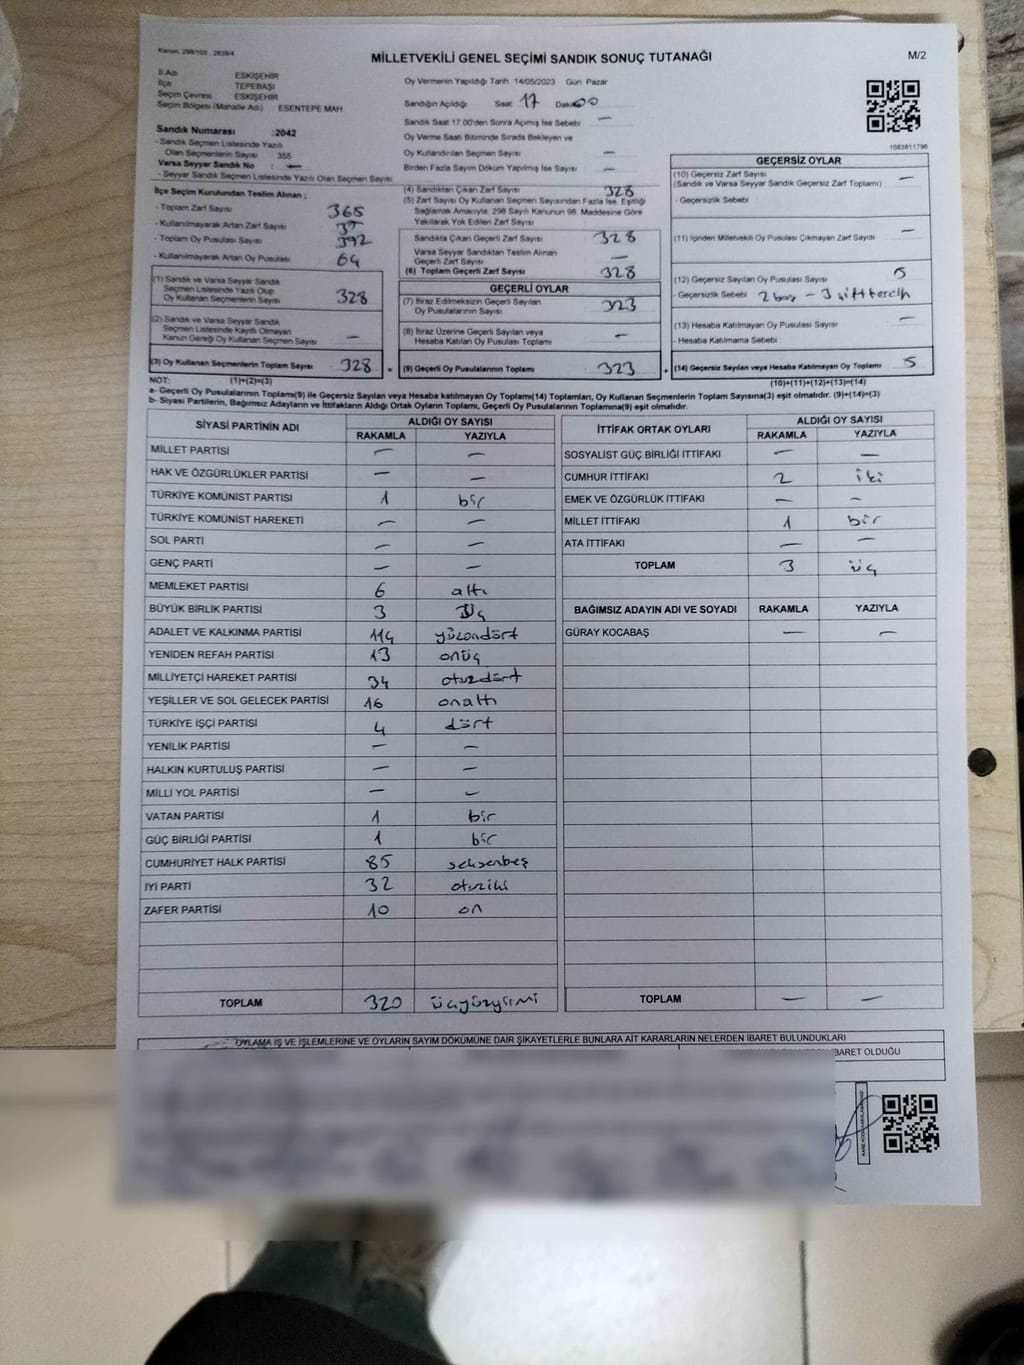 Kanun: 298/105 , 2839/4
MİLLETVEKİLİ GENEL SEÇİMİ SANDIK SONUÇ TUTANAĞI
M/2
İl Adı ESKİŞEHİR
İlçe TEPEBAŞI
Seçim Çevresi ESKİŞEHİR
Seçim Bölgesi (Mahalle Adı) : ESENTEPE MAH
Sandık Numarası :2042
- Sandık Seçmen Listesinde Yazılı
Olan Seçmenlerin Sayısı : 355
Varsa Seyyar Sandık No : —
- Seyyar Sandık Seçmen Listesinde Yazılı Olan Seçmen Sayısı
Oy Vermenin Yapıldığı Tarih 14/05/2023 Gün Pazar
Sandığın Açıldığı Saat 17 Dakika 00
Sandık Saat 17.00'den Sonra Açılmış İse Sebebi —
Oy Verme Saati Bitiminde Sırada Bekleyen ve
Oy Kullandırılan Seçmen Sayısı —
Birden Fazla Sayım Döküm Yapılmış İse Sayısı —
1083811796
İlçe Seçim Kurulundan Teslim Alınan ;
- Toplam Zarf Sayısı 365
- Kullanılmayarak Artan Zarf Sayısı 37
- Toplam Oy Pusulası Sayısı 392
- Kullanılmayarak Artan Oy Pusulası 64
(1) Sandık ve Varsa Seyyar Sandık
Seçmen Listesinde Yazılı Olup
Oy Kullanan Seçmenlerin Sayısı 328
(2) Sandık ve Varsa Seyyar Sandık
Seçmen Listesinde Kayıtlı Olmayan
Kanun Gereği Oy Kullanan Seçmen Sayısı —
(3) Oy Kullanan Seçmenlerin Toplam Sayısı 328 =
(4) Sandıktan Çıkan Zarf Sayısı 328
(5) Zarf Sayısı Oy Kullanan Seçmen Sayısından Fazla İse, Eşitliği
Sağlamak Amacıyla, 298 Sayılı Kanunun 98. Maddesine Göre
Yakılarak Yok Edilen Zarf Sayısı
Sandıkta Çıkan Geçerli Zarf Sayısı 328
Varsa Seyyar Sandıktan Teslim Alınan
Geçerli Zarf Sayısı —
(6) Toplam Geçerli Zarf Sayısı 328
GEÇERLİ OYLAR
(7) İtiraz Edilmeksizin Geçerli Sayılan
Oy Pusulalarının Sayısı 323
(8) İtiraz Üzerine Geçerli Sayılan veya
Hesaba Katılan Oy Pusulası Toplamı —
(9) Geçerli Oy Pusulalarının Toplamı 323 +
GEÇERSİZ OYLAR
(10) Geçersiz Zarf Sayısı —
(Sandık ve Varsa Seyyar Sandık Geçersiz Zarf Toplamı)
- Geçersizlik Sebebi
(11) İçinden Milletvekili Oy Pusulası Çıkmayan Zarf Sayısı —
(12) Geçersiz Sayılan Oy Pusulası Sayısı 5
- Geçersizlik Sebebi 2 boş - 3 çift tercih
(13) Hesaba Katılmayan Oy Pusulası Sayısı —
- Hesaba Katılmama Sebebi
(14) Geçersiz Sayılan veya Hesaba Katılmayan Oy Toplamı 5
NOT: (1)+(2)=(3) (10)+(11)+(12)+(13)=(14)
a- Geçerli Oy Pusulalarının Toplamı(9) ile Geçersiz Sayılan veya Hesaba katılmayan Oy Toplamı(14) Toplamları, Oy Kullanan Seçmenlerin Toplam Sayısına(3) eşit olmalıdır. (9)+(14)=(3)
b- Siyasi Partilerin, Bağımsız Adayların ve İttifakların Aldığı Ortak Oyların Toplamı, Geçerli Oy Pusulalarının Toplamına(9) eşit olmalıdır.
SİYASİ PARTİNİN ADI ALDIĞI OY SAYISI
RAKAMLA YAZIYLA
MİLLET PARTİSİ — —
HAK VE ÖZGÜRLÜKLER PARTİSİ — —
TÜRKİYE KOMÜNİST PARTİSİ 1 bir
TÜRKİYE KOMÜNİST HAREKETİ — —
SOL PARTİ — —
GENÇ PARTİ — —
MEMLEKET PARTİSİ 6 altı
BÜYÜK BİRLİK PARTİSİ 3 üç
ADALET VE KALKINMA PARTİSİ 114 yüzondört
YENİDEN REFAH PARTİSİ 13 onüç
MİLLİYETÇİ HAREKET PARTİSİ 34 otuzdört
YEŞİLLER VE SOL GELECEK PARTİSİ 16 onaltı
TÜRKİYE İŞÇİ PARTİSİ 4 dört
YENİLİK PARTİSİ — —
HALKIN KURTULUŞ PARTİSİ — —
MİLLİ YOL PARTİSİ — —
VATAN PARTİSİ 1 bir
GÜÇ BİRLİĞİ PARTİSİ 1 bir
CUMHURİYET HALK PARTİSİ 85 seksenbeş
İYİ PARTİ 32 otuziki
ZAFER PARTİSİ 10 on
TOPLAM 320 üçyüzyirmi
İTTİFAK ORTAK OYLARI ALDIĞI OY SAYISI
RAKAMLA YAZIYLA
SOSYALİST GÜÇ BİRLİĞİ İTTİFAKI — —
CUMHUR İTTİFAKI 2 iki
EMEK VE ÖZGÜRLÜK İTTİFAKI — —
MİLLET İTTİFAKI 1 bir
ATA İTTİFAKI — —
TOPLAM 3 üç
BAĞIMSIZ ADAYIN ADI VE SOYADI RAKAMLA YAZIYLA
GÜRAY KOCABAŞ — —
TOPLAM — —
OYLAMA İŞ VE İŞLEMLERİNE VE OYLARIN SAYIM DÖKÜMÜNE DAİR ŞİKAYETLERLE BUNLARA AİT KARARLARIN NELERDEN İBARET BULUNDUKLARI
İBARET OLDUĞU